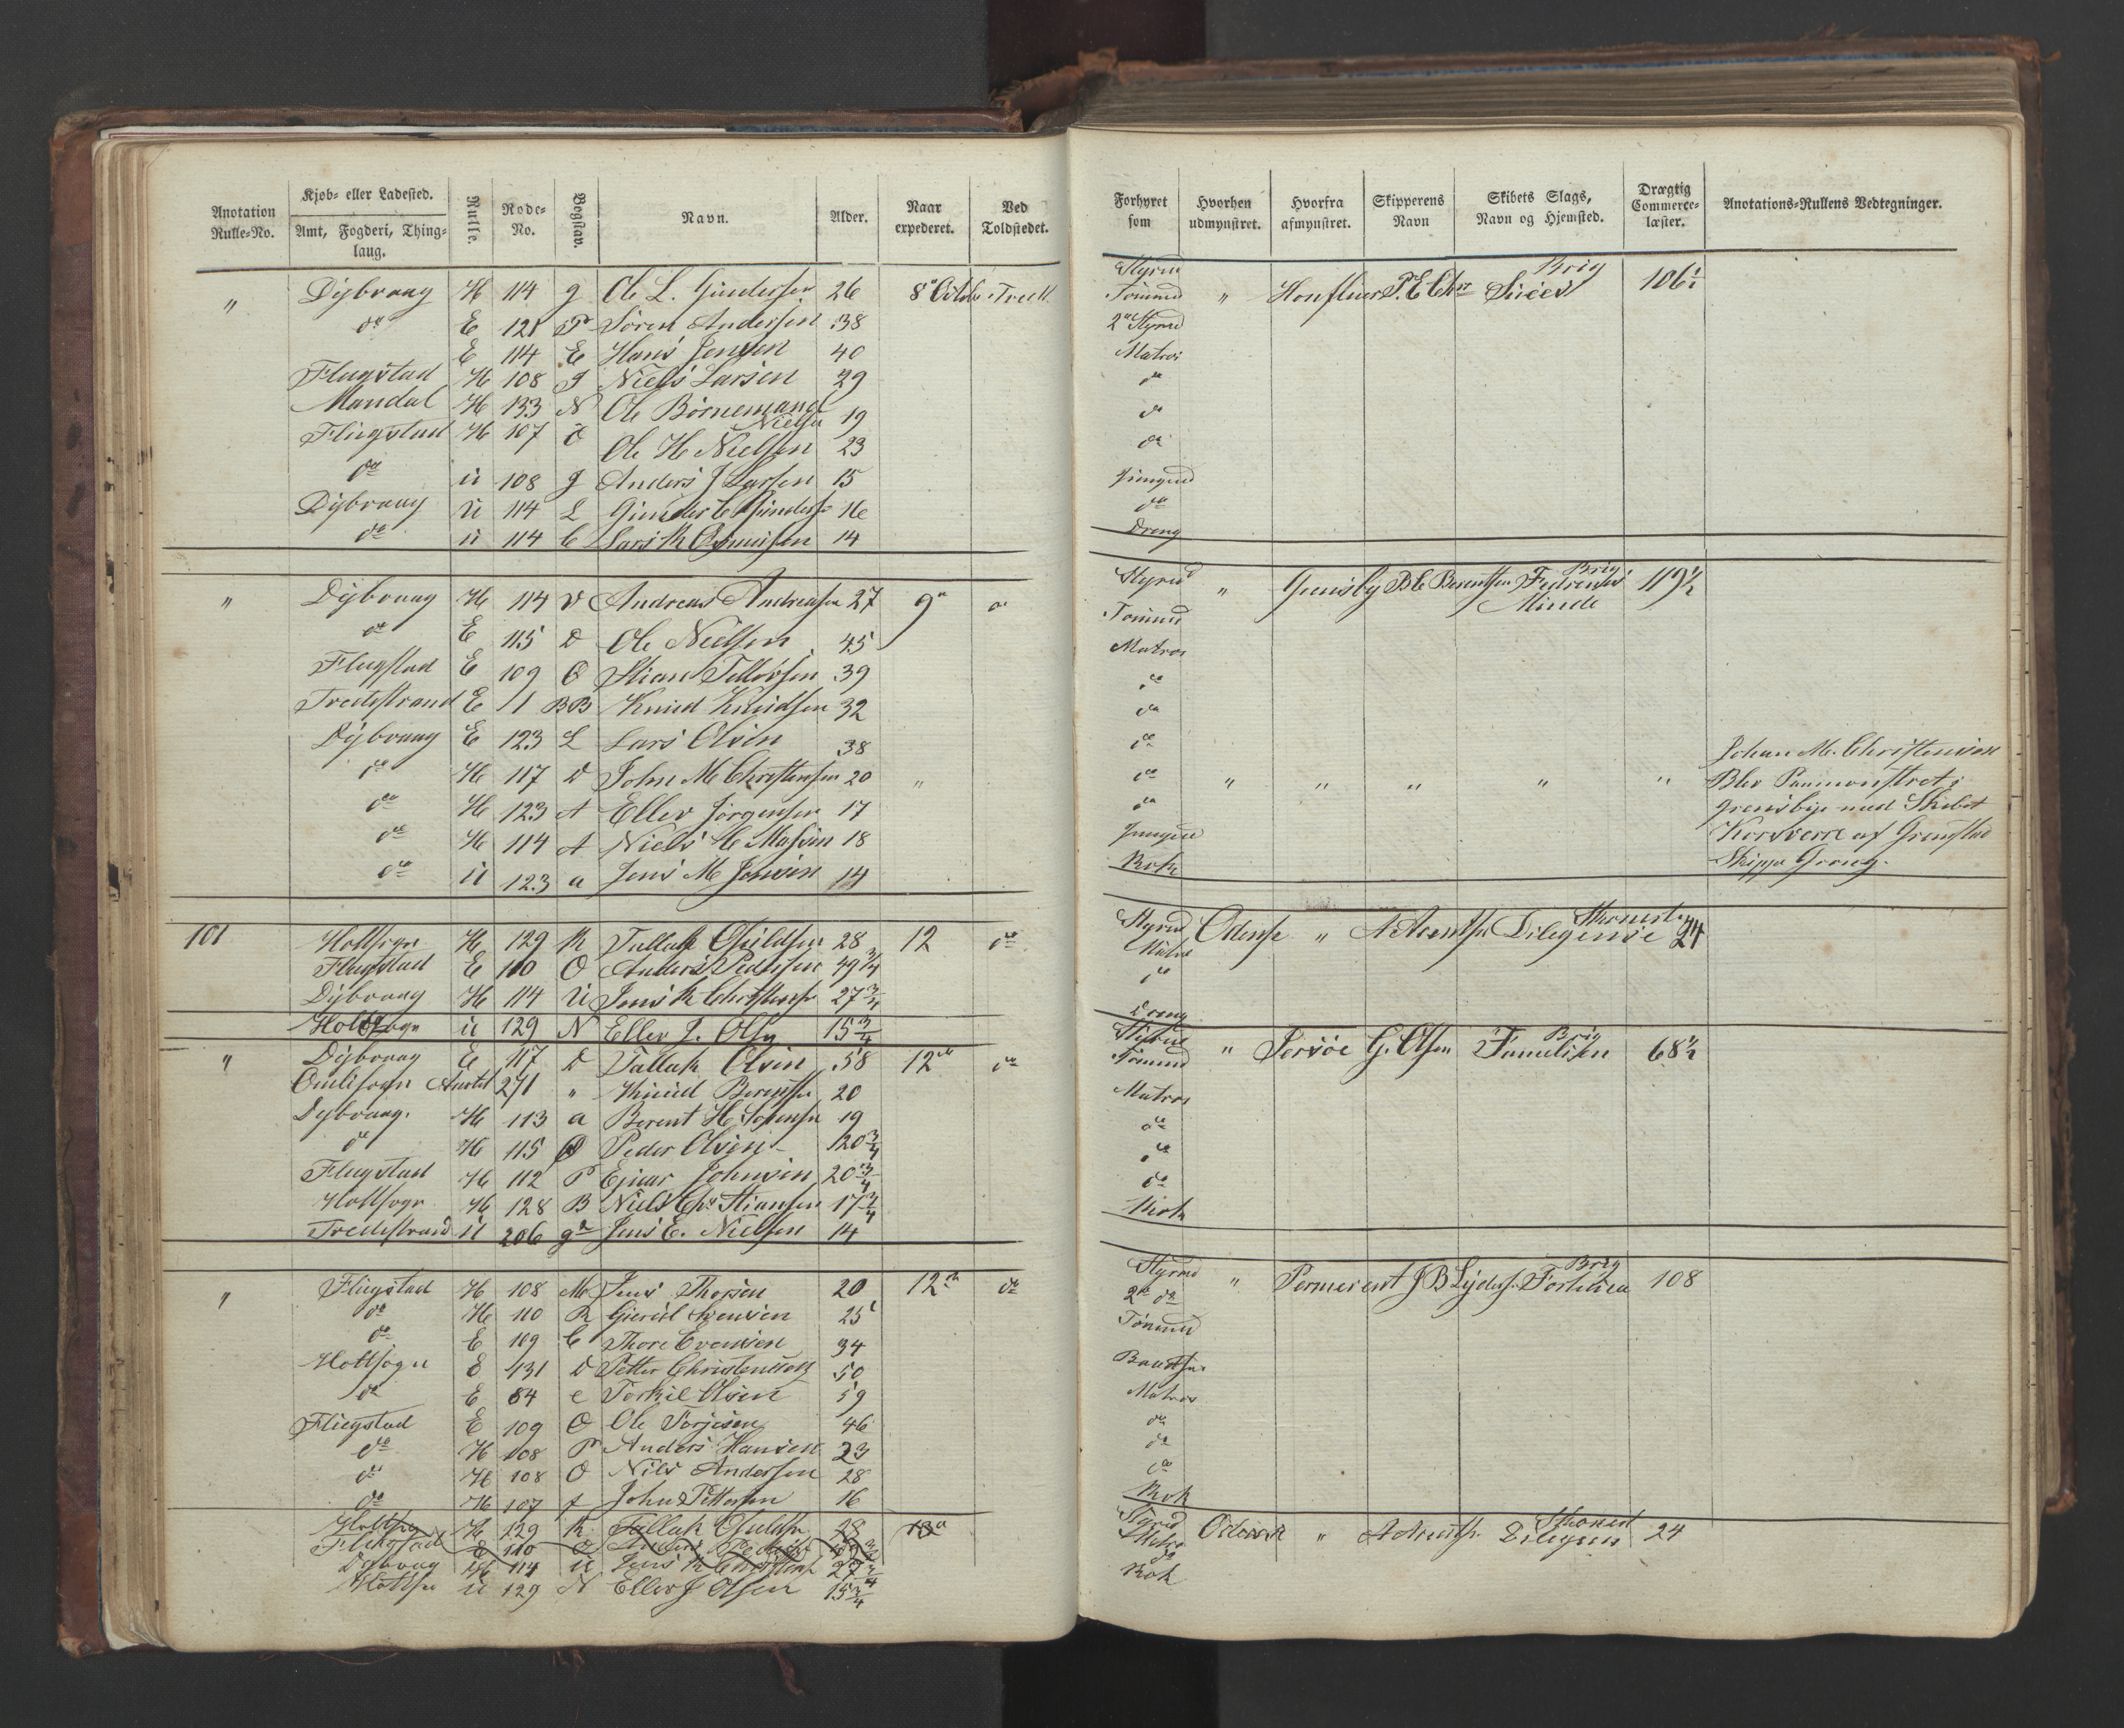 Anotation Rulle-No.
Kjøb- eller Ladested.
Amt, Fogderi, Thinglaug.
Rulle.
Rode-No.
Bogstav.
Navn.
Alder.
Naar expederet.
Ved Toldstedet.
" Dybvaag H 114 g Ole L. Gundersen 26 8
do E 121 P Søren Andersen 38
E 114 E Hans Jensen 40
Flagstad H 108 g Niels Larsen 29
Mandal H 133 N Ole Børnemand Nielsen 19
Flagstad H 107 Ole H Nielsen 23
do U 108 g Anders J Larsen 15
Dybvaag U 114 L 16
do U 114 C Lars K 14
" Dybvaag H 114 V Andreas Andreasen 27 9 do
do E 115 D Ole Nielsen 45
Flagstad E 109 O Stian Tellefsen 39
Tvedestrand E 1 BB Knud Knudsen 32
Dybvaag E 123 L Lars Olsen 38
do H 117 D John M Christensen 20 "
do H 123 A Ellev Jørgensen 17
do H 114 A Niels C Madsen 18
do U 123 a Jens M Jensen 14
101 Holtsogn H 129 K Tallak Olsen 28 12 do
Flagstad E 110 O Anders Pedersen 49 3/4
Dybvaag H 114 U Jens K Christensen 27 3/4
Holtsogn U 129 N Ellev J. Olsen 15 3/4
" Dybvaag E 117 D Tallak Olsen 58 12 do
271 " Knud Berentsen 20
Dybvaag. H 113 a Berent H Sørensen 19
do H 115 Peder Olsen 20 3/4
Flagstad H 112 P Ejnar Johnsen 20 3/4
Holtsogn H 128 B Niels Chr Stiansen 17 3/4
Tvedestrand U 206 Jens E. Nielsen 14
" Flagstad H 108 M Jens Thorsen 20 12 do
do H 110 R 25
do E 109 C Thore Evensen 34
Holtsogn E 131 D Petter Christensen 50
do E 84 e Torkil Olsen 59
Flagstad E 109 O Ole Torjesen 46
do H 108 P Anders Hansen 23
do H 108 O Nils Andersen 28
do H 107 f John Pettersen 16
Holtsogn H 129 K Tallak 28 13
Flagstad E 110 O Anders Pedersen 49 3/4
Dybvaag H 114 U Jens K Christensen 27 3/4
Holtsogn U 129 N Ellev J Olsen 15 3/4
Forhyret som
Hvorhen udmynstret.
Hvorfra afmynstret.
Skipperens Navn
Skibets Slags, Navn og Hjemsted.
Drægtig Commerce-læster.
Anotations-Rullens Vedtegninger.
Styrmd Brig
Tømmd " Honfleur 106 1/2
2d Styrmd
Matros
do
do
do
Jungmd
do
Dreng
Styrmd " Grimsby Berentsen Brig Fædrenes Minde 119 1/2
Tømmd
Matros
do
do
do
do " " " " "
do
Jungmd
Kok
Johan M. Christensen
Blev paamønstret i
Grimsbye med Skibet
Korsværre af Grimstad
Skipper
Styrmd Odense " A Arentsen Diligense 24
Matros
do
Dreng
Styrmd Brig
Tømmd " G. Olsen Familien 68 1/2
Matros
do
do
do
Kok
Styrmd " J B Brig Fortuna 108
2d do
Tømmd
Baadsm
Matros
do
do
do
Kok
Styrmd " A Arentsen 24
Matros
do
Kok